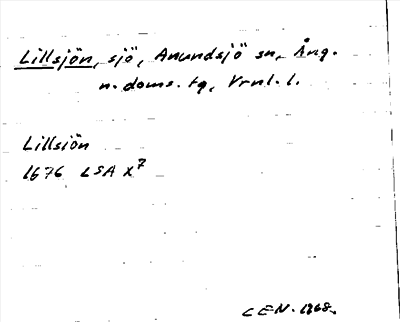 Lillsjön, sjö, Anundsjö sn, Ång.
n. doms. tg, Vrnl. l.
Lillsiön
1676 LSA X7
CEN. 1968.